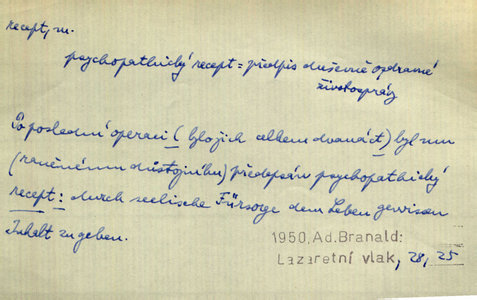 recept, m.
psychopathický recept = předpis duševně ozdravné
životosprávy
Po poslední operaci (bylo jich celkem dvanáct) byl mu
(raněnému důstojníku) předepsán psychopathický
recept: durch seelische Fürsorge dem Leben gewissen
Inhalt zu geben.
1950, Ad. Branald:
Lazaretní vlak, 28, 25